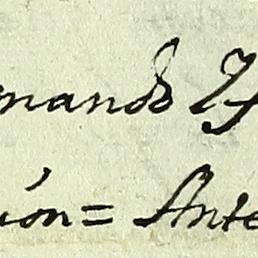 nando Ys
ión= Ante